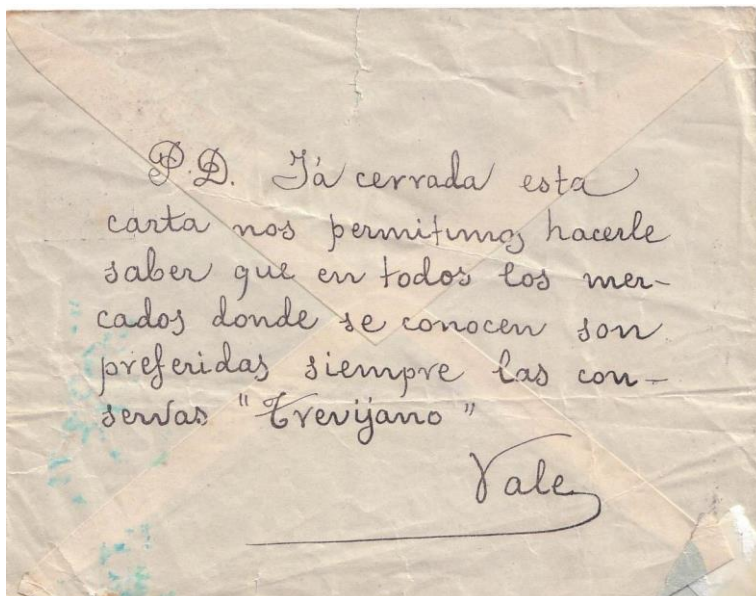 P.D. Ya cerrada esta
carta nos permitimos hacerle
saber que en todos los mer-
cados donde se conocen son
preferidas siempre las con-
servas "Trevijano"
Vale